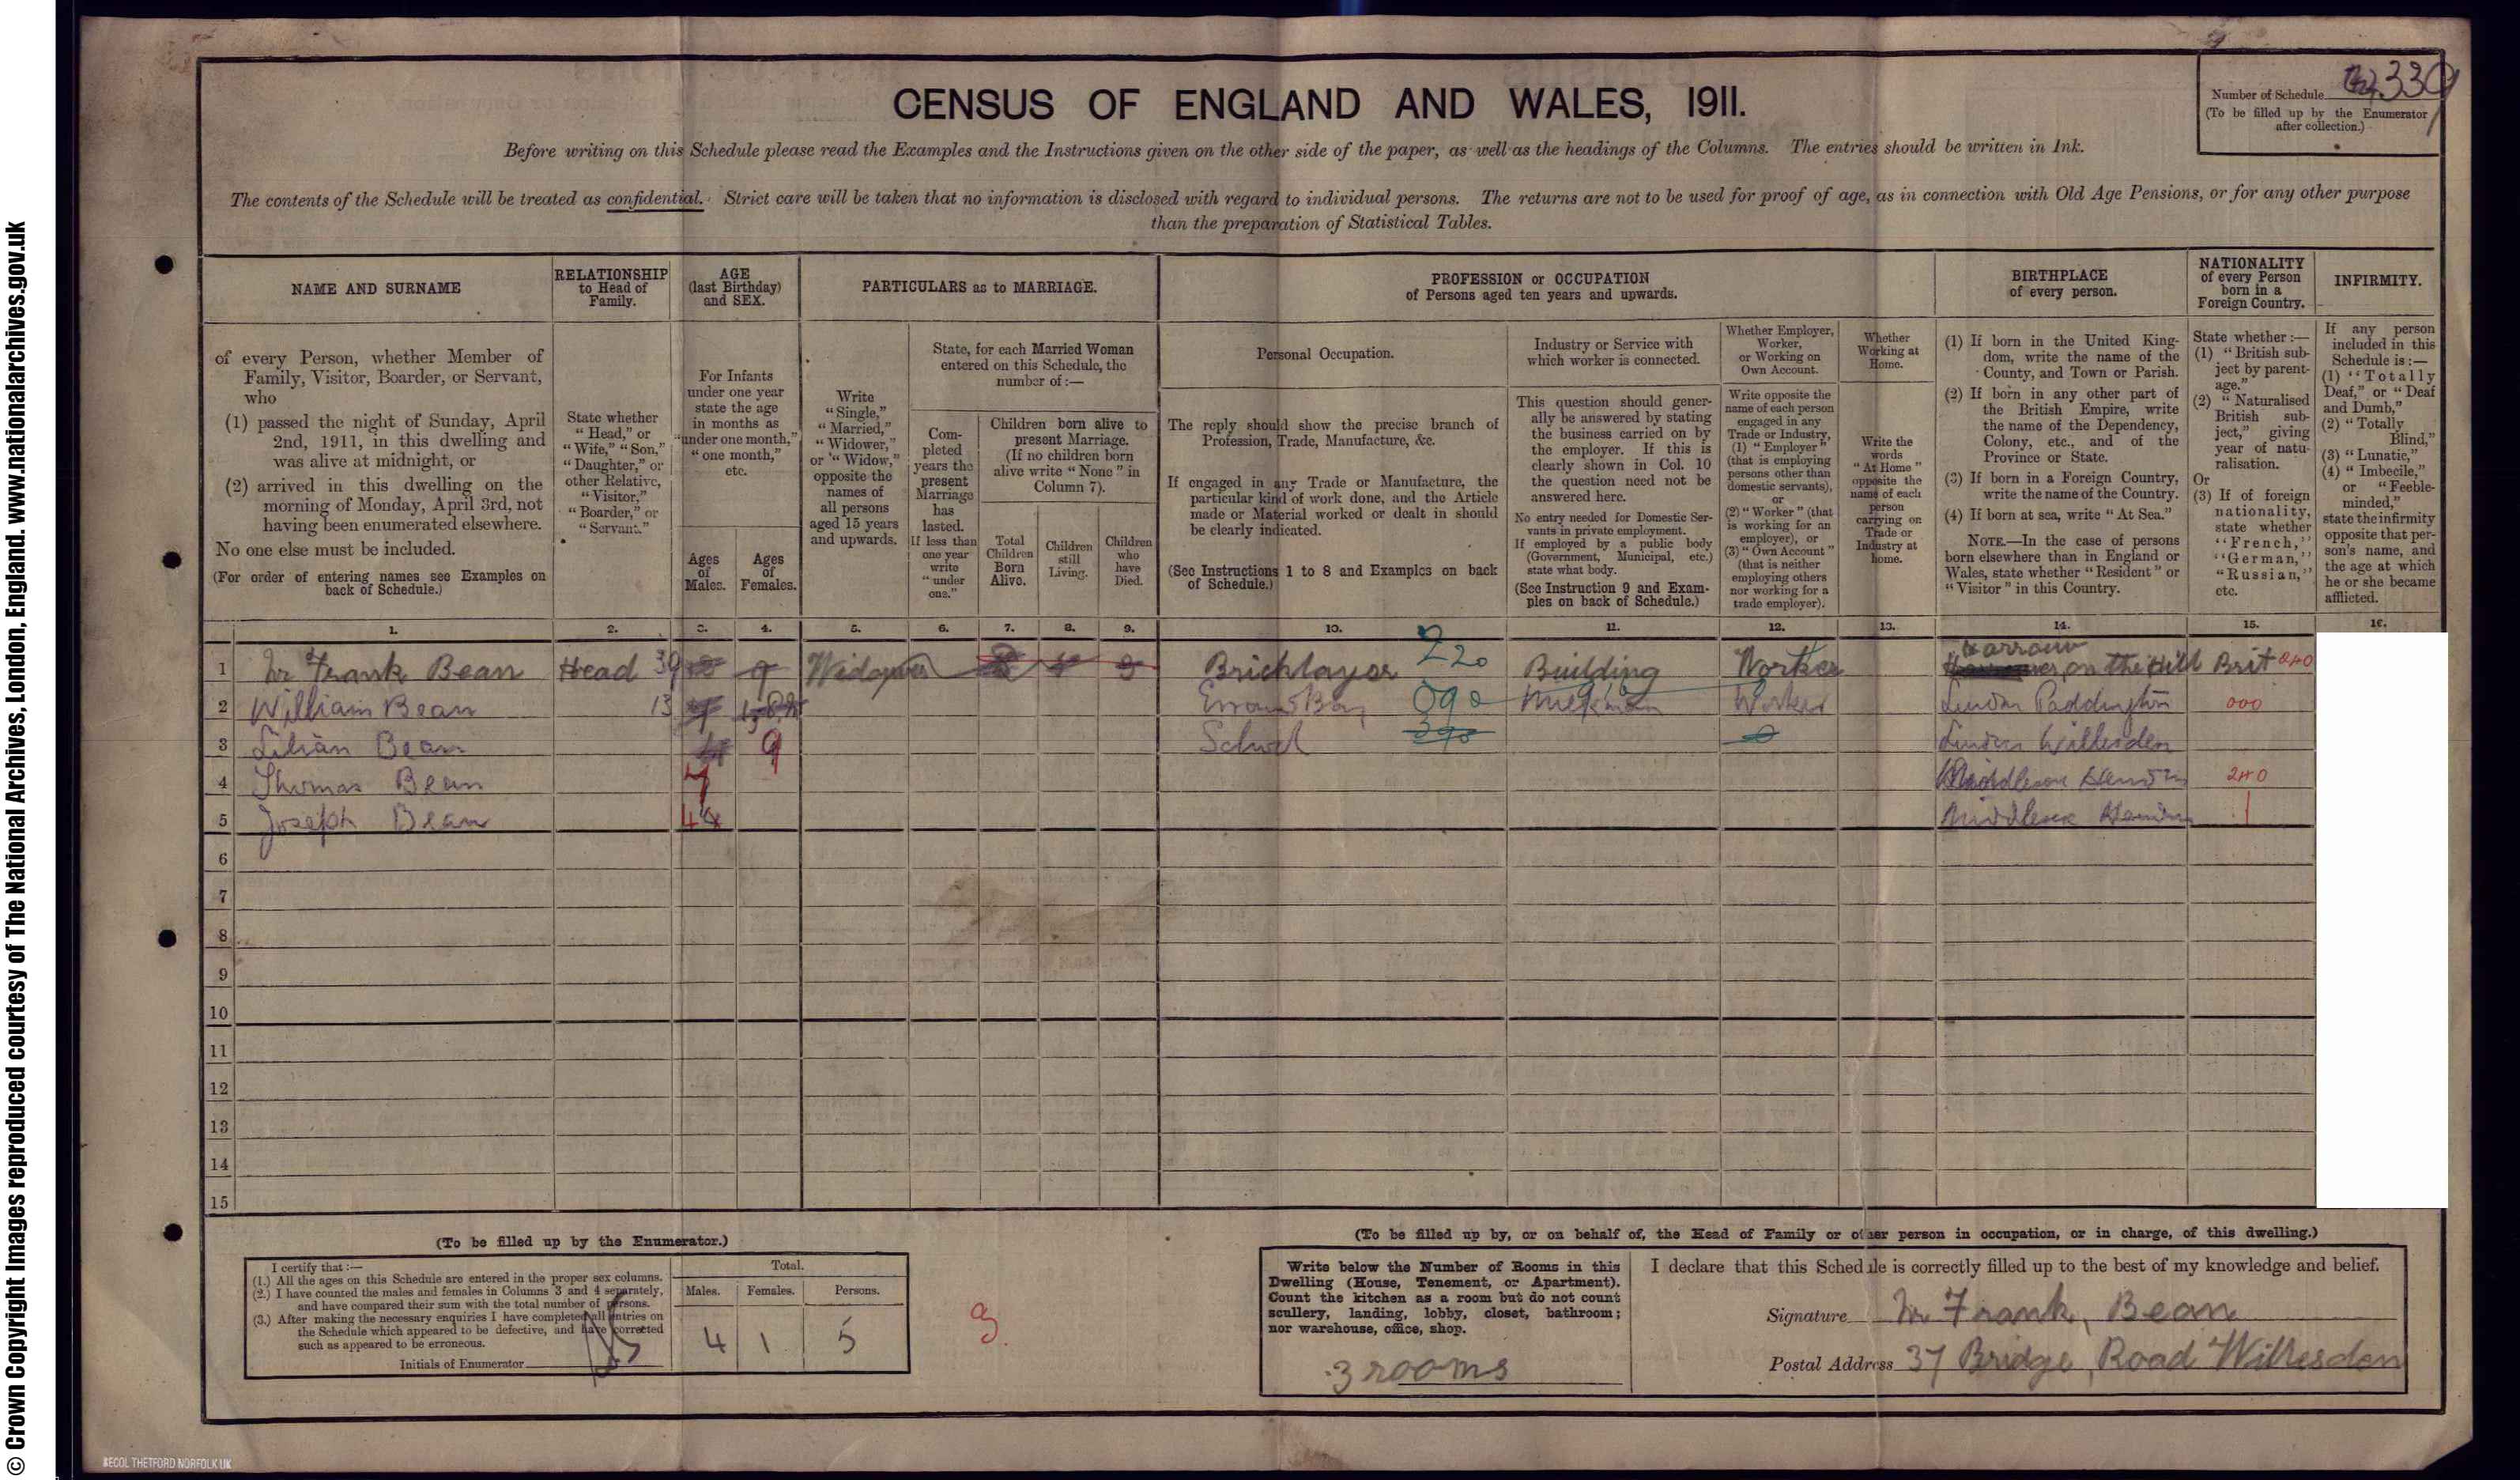 © Crown Copyright Images reproduced courtesy of The National Archives, London, England. www.nationalarchives.gov.uk
CENSUS OF ENGLAND AND WALES, 1911.
Number of Schedule 330
(To be filled up by the Enumerator
after collection.)
Before writing on this Schedule please read the Examples and the Instructions given on the other side of the paper, as well as the headings of the Columns. The entries should be written in Ink.
The contents of the Schedule will be treated as confidential. Strict care will be taken that no information is disclosed with regard to individual persons. The returns are not to be used for proof of age, as in connection with Old Age Pensions, or for any other purpose
than the preparation of Statistical Tables.
NAME AND SURNAME
of every Person, whether Member of
Family, Visitor, Boarder, or Servant,
who
(1) passed the night of Sunday, April
2nd, 1911, in this dwelling and
was alive at midnight, or
(2) arrived in this dwelling on the
morning of Monday, April 3rd, not
having been enumerated elsewhere.
No one else must be included.
(For order of entering names see Examples on
back of Schedule.)
RELATIONSHIP
to Head of
Family.
State whether
"Head," or
"Wife," "Son,"
"Daughter," or
other Relative,
"Visitor,"
"Boarder," or
"Servant."
AGE
(last Birthday)
and SEX.
For Infants
under one year
state the age
in months as
"under one month,"
"one month,"
etc.
Ages
of
Males.
Ages
of
Females.
PARTICULARS as to MARRIAGE.
Write
"Single,"
"Married,"
"Widower,"
or "Widow,"
opposite the
names of
all persons
aged 15 years
and upwards.
State, for each Married Woman
entered on this Schedule, the
number of:—
Com-
pleted
years the
present
Marriage
has
lasted.
If less than
one year
write
"under
one."
Children born alive to
present Marriage.
(If no children born
alive write "None" in
Column 7).
Total
Children
Born
Alive.
Children
still
Living.
Children
who
have
Died.
PROFESSION or OCCUPATION
of Persons aged ten years and upwards.
Personal Occupation.
The reply should show the precise branch of
Profession, Trade, Manufacture, &c.
If engaged in any Trade or Manufacture, the
particular kind of work done, and the Article
made or Material worked or dealt in should
be clearly indicated.
(See Instructions 1 to 8 and Examples on back
of Schedule.)
Industry or Service with
which worker is connected.
This question should gener-
ally be answered by stating
the business carried on by
the employer. If this is
clearly shown in Col. 10
the question need not be
answered here.
No entry needed for Domestic Ser-
vants in private employment.
If employed by a public body
(Government, Municipal, etc.)
state what body.
(See Instruction 9 and Exam-
ples on back of Schedule.)
Whether Employer,
Worker,
or Working on
Own Account.
Write opposite the
name of each person
engaged in any
Trade or Industry,
(1) "Employer"
(that is employing
persons other than
domestic servants),
or
(2) "Worker" (that
is working for an
employer), or
(3) "Own Account"
(that is neither
employing others
nor working for a
trade employer).
Whether
Working at
Home.
Write the
words
"At Home"
opposite the
name of each
person
carrying on
Trade or
Industry at
home.
BIRTHPLACE
of every person.
(1) If born in the United King-
dom, write the name of the
County, and Town or Parish.
(2) If born in any other part of
the British Empire, write
the name of the Dependency,
Colony, etc., and of the
Province or State.
(3) If born in a Foreign Country,
write the name of the Country.
(4) If born at sea, write "At Sea."
NOTE.—In the case of persons
born elsewhere than in England or
Wales, state whether "Resident" or
"Visitor" in this Country.
NATIONALITY
of every Person
born in a
Foreign Country.
State whether:—
(1) "British sub-
ject by parent-
age."
(2) "Naturalised
British sub-
ject," giving
year of natu-
ralisation.
Or
(3) If of foreign
nationality,
state whether
"French,"
"German,"
"Russian,"
etc.
INFIRMITY.
If any person
included in this
Schedule is:—
(1) "Totally
Deaf," or "Deaf
and Dumb,"
(2) "Totally
Blind,"
(3) "Lunatic,"
(4) "Imbecile,"
or "Feeble-
minded,"
state the infirmity
opposite that per-
son's name, and
the age at which
he or she became
afflicted.
1. 2. 3. 4. 5. 6. 7. 8. 9. 10. 11. 12. 13. 14. 15. 16.
1 Wr Frank Bean Head 39 Widower Bricklayer 220 Building Worker Harrow on the Hill Brit 240
2 William Bean 13 Errand Boy 090 Milkman Worker London Paddington 000
3 Lilian Bean 9 School 390 London Willesden
4 Thomas Bean 7 Middlesex Hendon 240
5 Joseph Bean 4 Middlesex Hendon
6
7
8
9
10
11
12
13
14
15
(To be filled up by the Enumerator.)
I certify that:—
(1.) All the ages on this Schedule are entered in the proper sex columns.
(2.) I have counted the males and females in Columns 3 and 4 separately,
and have compared their sum with the total number of persons.
(3.) After making the necessary enquiries I have completed all entries on
the Schedule which appeared to be defective, and have corrected
such as appeared to be erroneous.
Initials of Enumerator
Total.
Males. Females. Persons.
4 1 5
(To be filled up by, or on behalf of, the Head of Family or other person in occupation, or in charge, of this dwelling.)
Write below the Number of Rooms in this
Dwelling (House, Tenement, or Apartment).
Count the kitchen as a room but do not count
scullery, landing, lobby, closet, bathroom;
nor warehouse, office, shop.
3 rooms
I declare that this Schedule is correctly filled up to the best of my knowledge and belief.
Signature Wr Frank, Bean
Postal Address 37 Bridge, Road Willesden